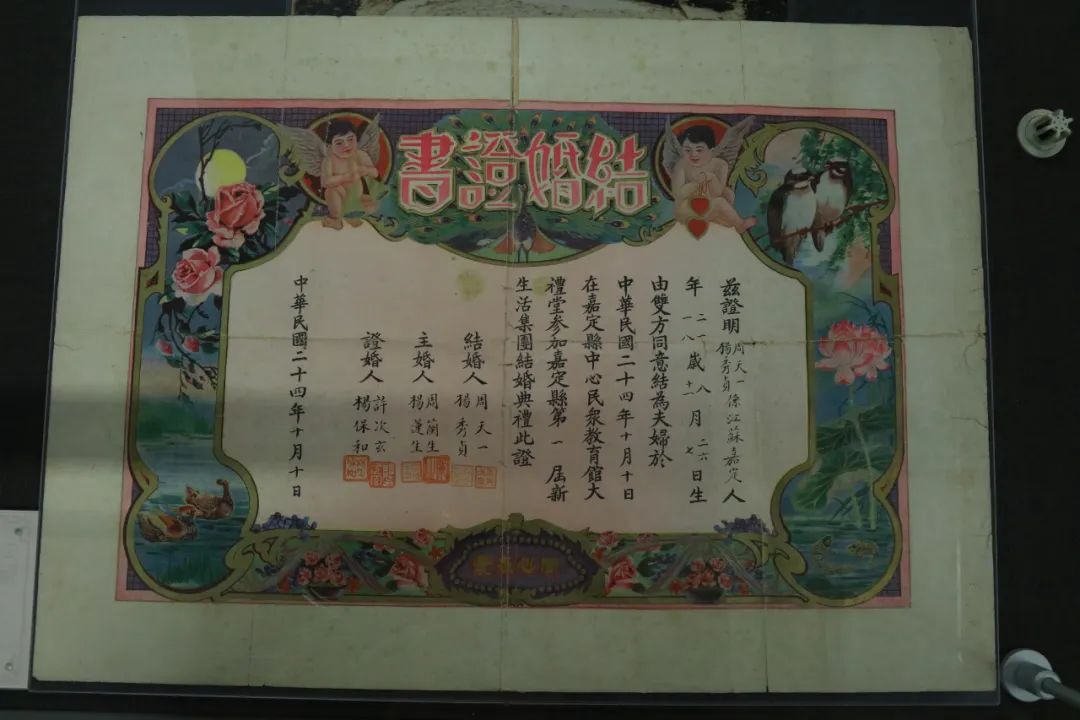 結婚證書
茲證明周天一楊秀貞係江蘇嘉定人
年二一一八歲八十一月二六七日生
由雙方同意結為夫婦於
中華民國二十四年十月十日
在嘉定縣中心民眾教育館大
禮堂參加嘉定縣第一屆新
生活集團結婚典禮此證
結婚人周天一楊秀貞
主婚人周蘭生楊蓮生
證婚人許次玄楊保和
中華民國二十四年十月十日